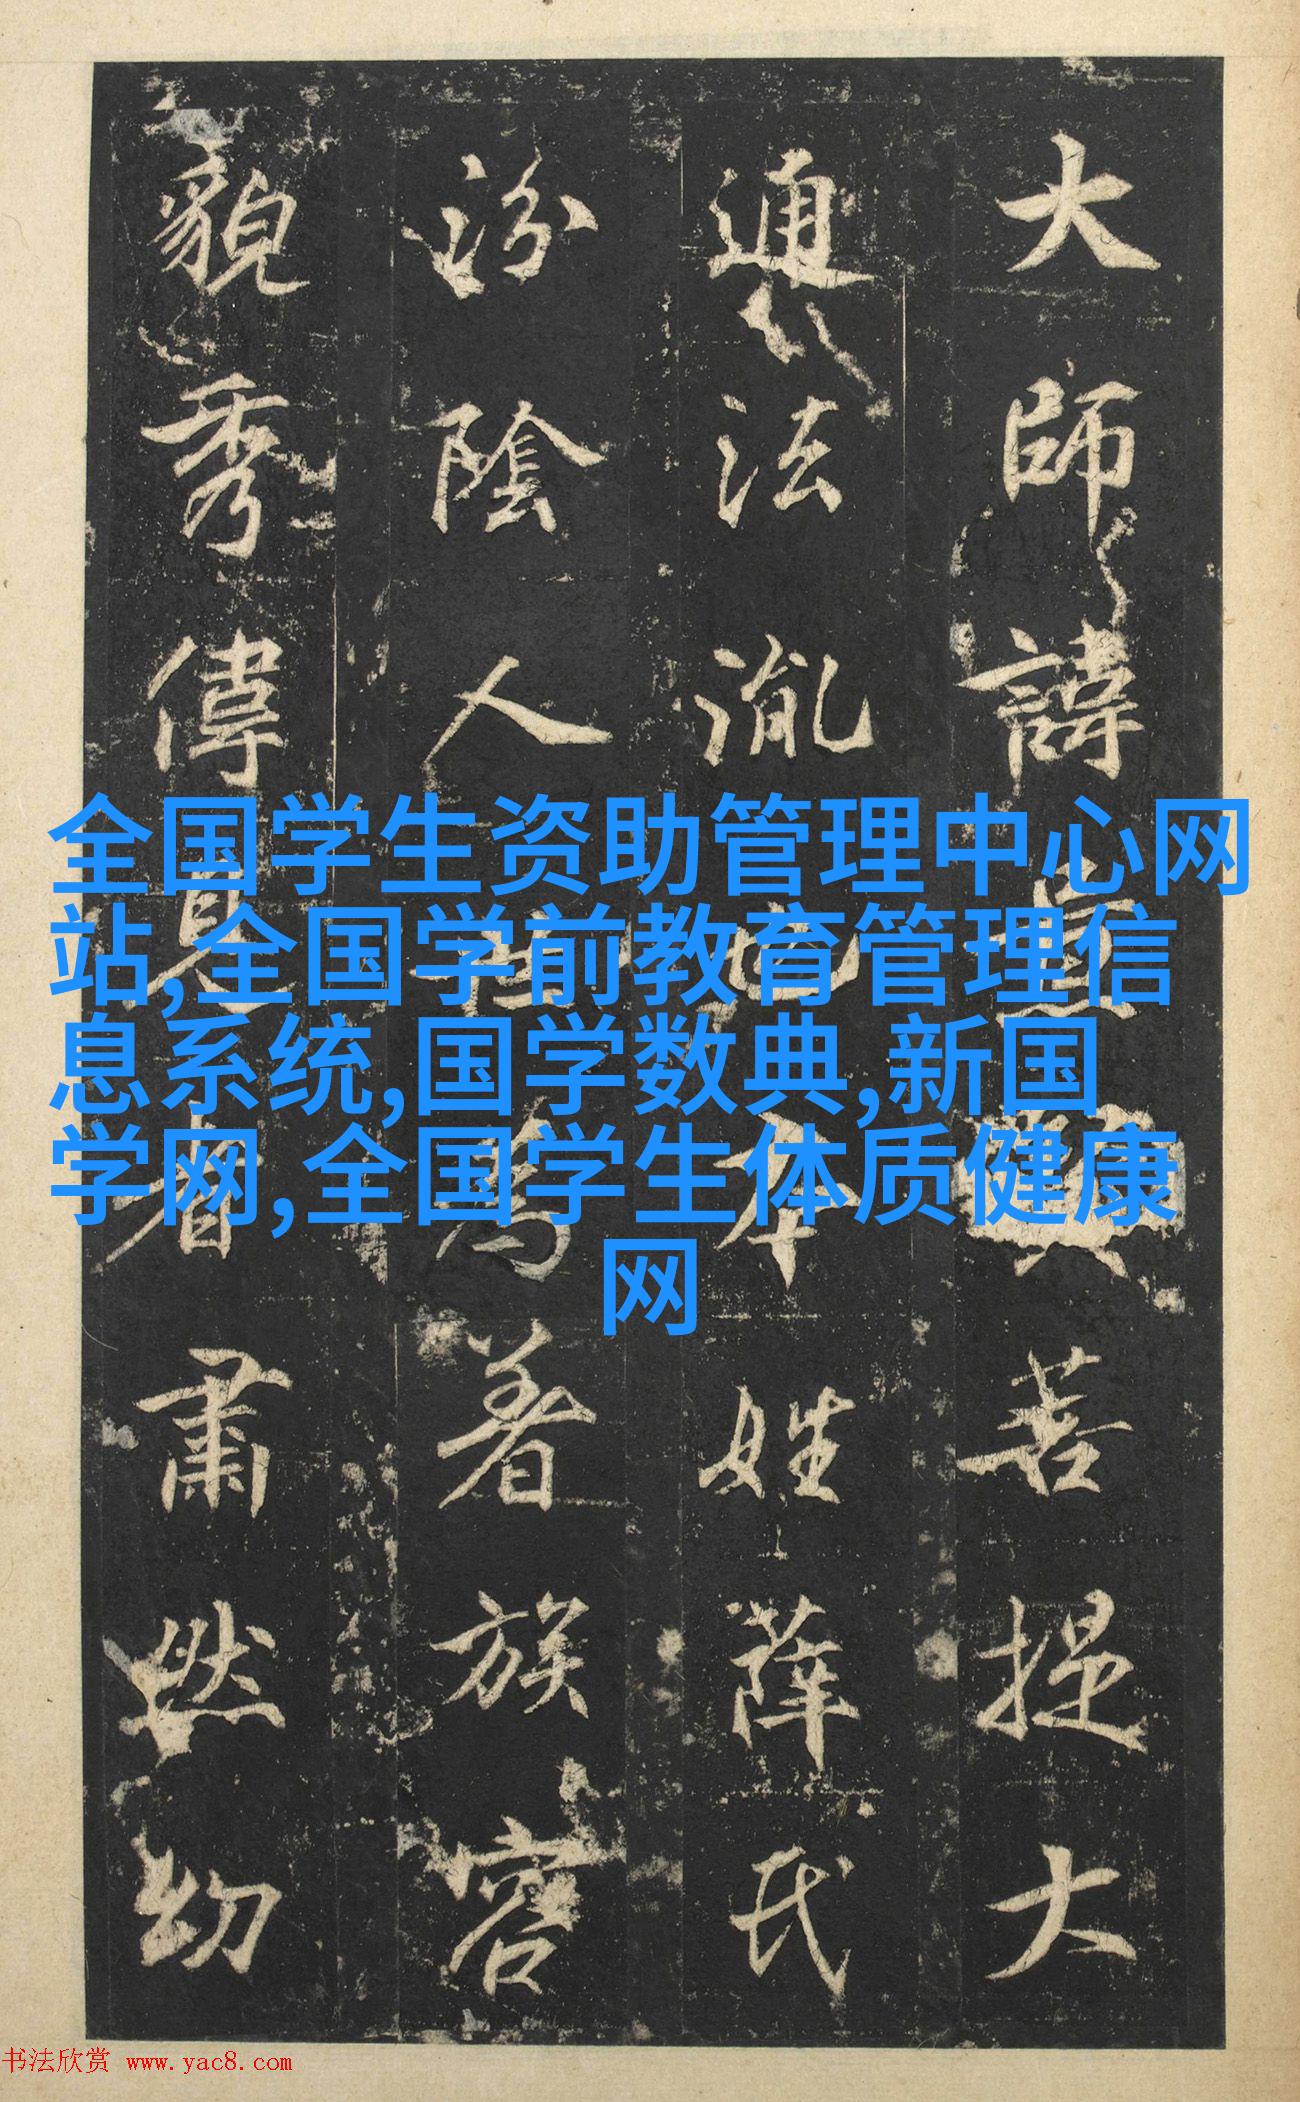 大師諱菩提大
通法胤也本姓薛氏
汾陰人世為著族容
貌秀偉見者肅然幼
全国学生资助管理中心网
站,全国学前教育管理信
息系统,国学数典,新国
学网,全国学生体质健康
网
书法欣赏 www.yac8.com